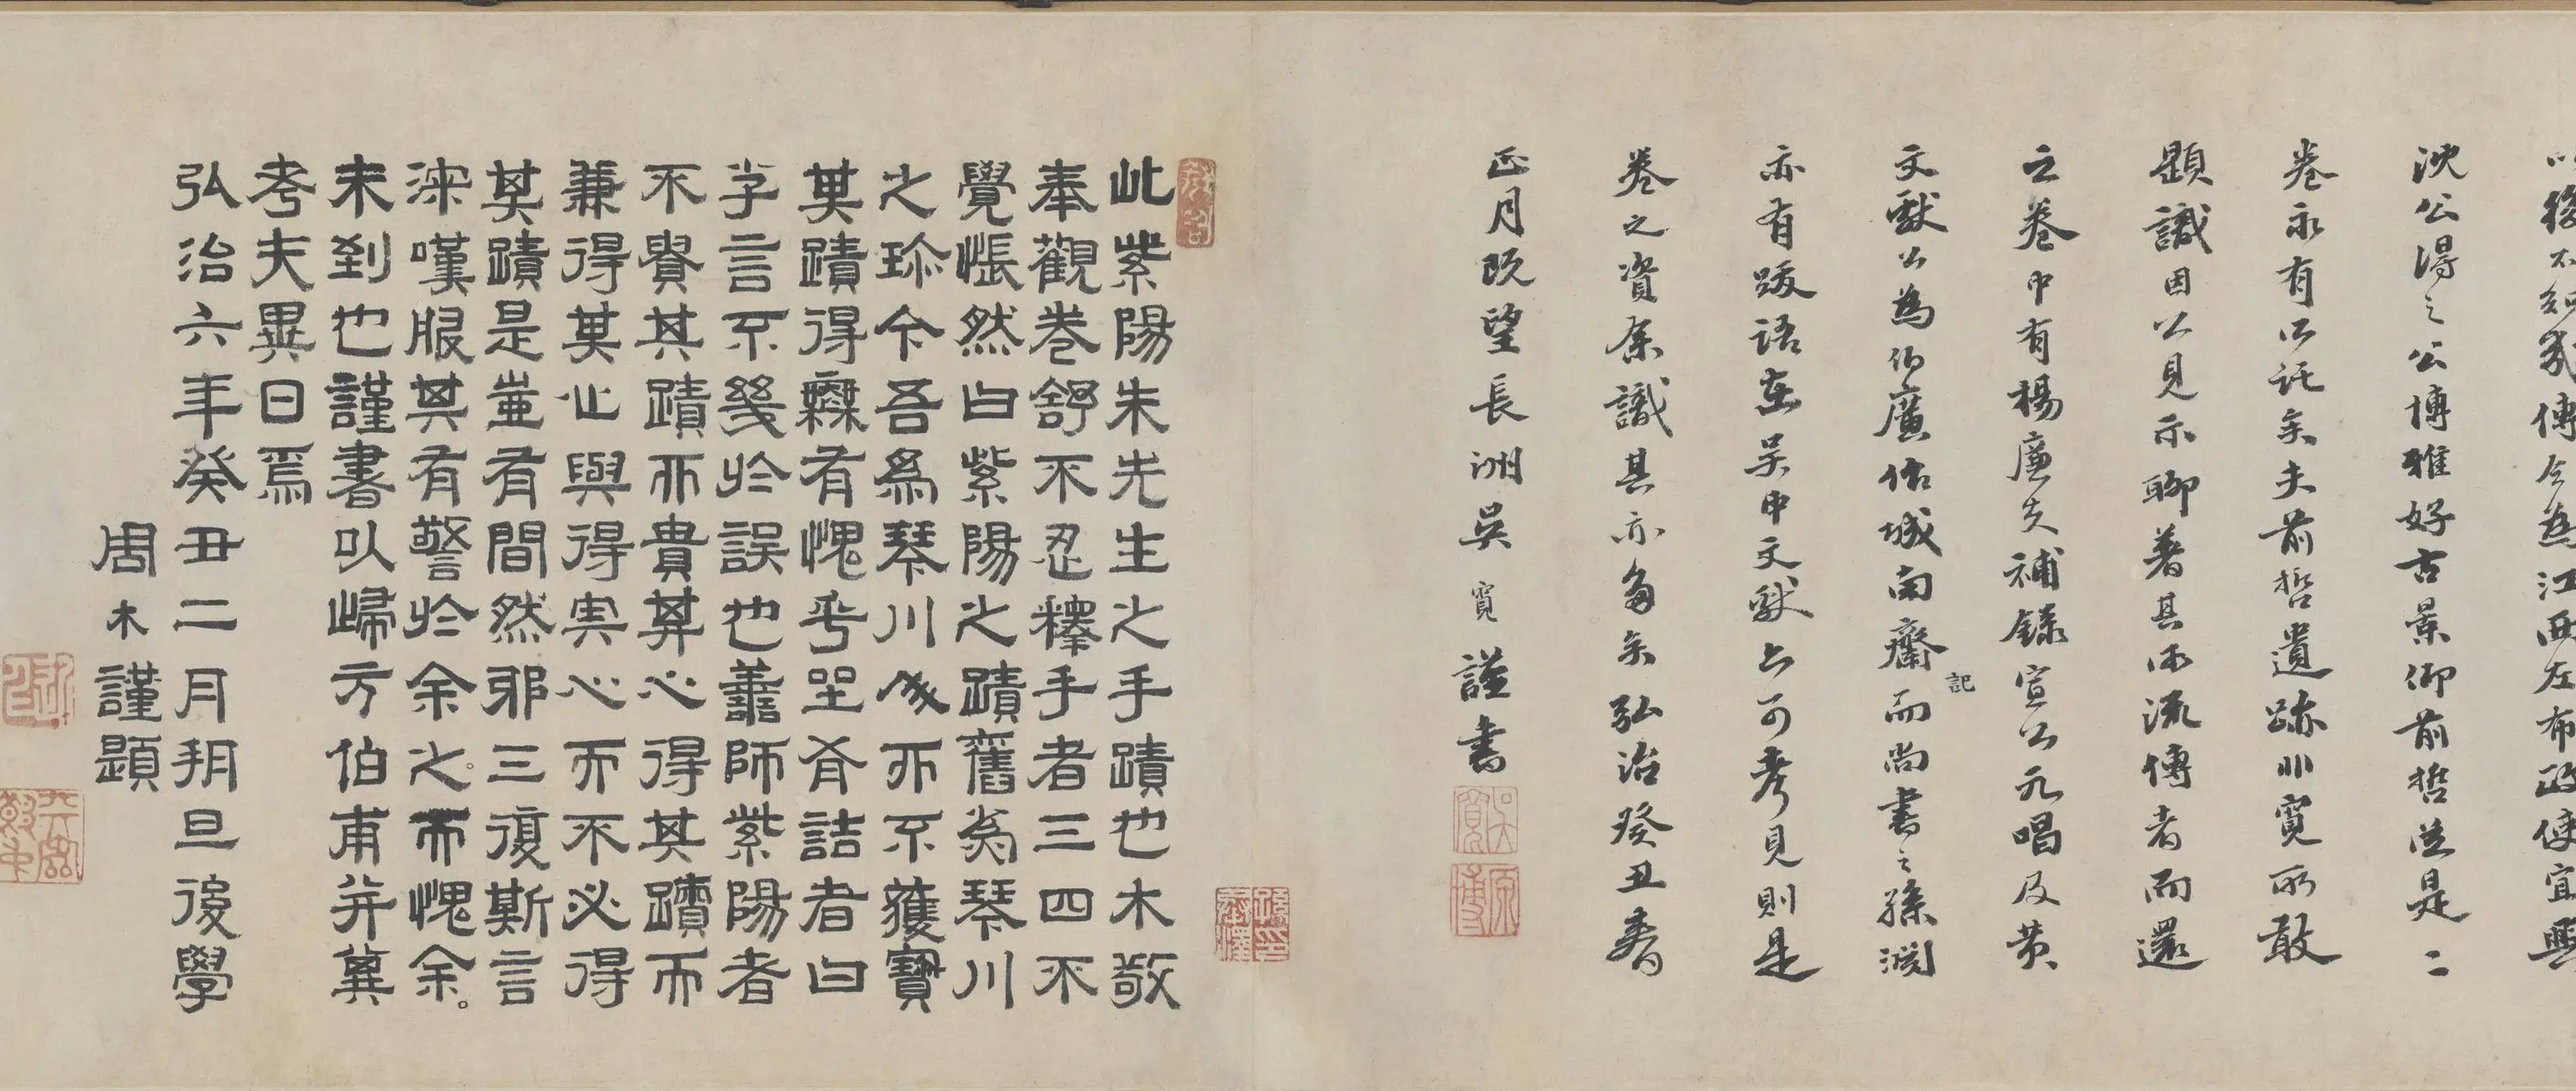 以後不知幾傳今為江西左布政使宜興
沈公得之公博雅好古景仰前哲從是二
卷永有所託矣夫前哲遺跡非寬所敢
題識因公見示聊著其所流傳者而還
之卷中有楊廉夫補錄宣公元唱及黃
文獻公為伯廉作城南齋記而尚書之孫淵
亦有跋語在吳中文獻上可考見則是
卷之資余識其亦多矣弘治癸丑春
正月既望長洲吳寬謹書
吳寬
原博
此紫陽朱先生之手蹟也木敬
奉觀卷舒不忍釋手者三四不
覺悵然曰紫陽之蹟舊為琴川
之珍今吾為琴川人而不獲寶
其蹟得無有愧乎坐有詰者曰
子言不幾於誤也善師紫陽者
不貴其蹟而貴其心得其蹟而
兼得其心與得其心而不必得
其蹟是豈有間然邪三復斯言
深嘆服其有警於余之而愧余
未到也謹書以歸方伯甫并冀
考夫異日焉
弘治六年癸丑二月朔旦後學
周木謹題